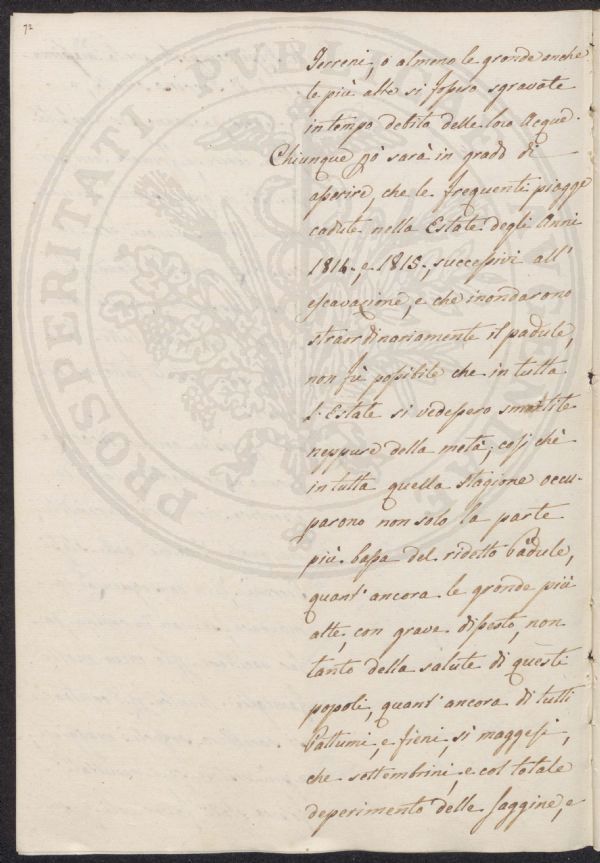 72
Terreni, o almeno le gronde anche
le più alte si fossero sgravate
in tempo debito delle loro Acque.
Chiunque può sarà in grado di
asserire, che le frequenti piogge
cadute nella Estate degli Anni
1814, e 1815, successivi all'
escavazione, e che inondarono
straordinariamente il padule,
non fù possibile che in tutta
l'Estate si vedessero smaltite
neppure della metà; così chè
in tutta quella stagione occu-
parono non solo la parte
più bassa del ridetto Pàdule,
quant'ancora le gronde più
alte, con grave dissesto, non
tanto della salute di questi
popoli, quant'ancora di tutti
Pattumi, e fieni, si maggesi,
che settembrini, e col totale
deperimento delle saggine, e
PROSPERITATI PUBLICAE